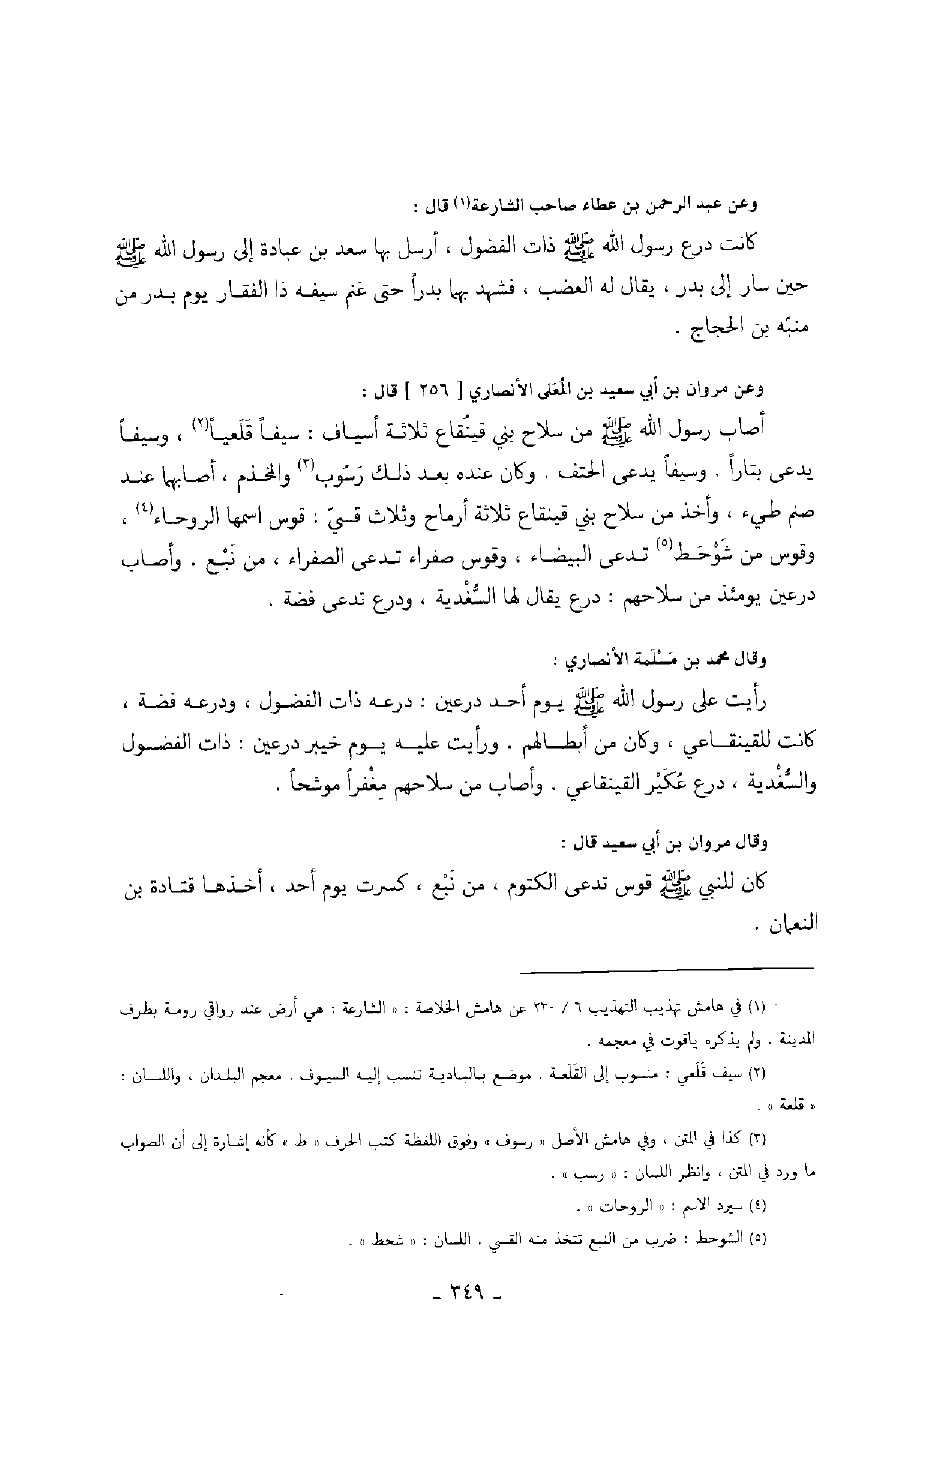 وعن عبد الرحمن بن عطاء صاحب الشارعة(١) قال :
كانت درع رسول الله ﷺ ذات الفضول ، أرسل بها سعد بن عبادة إلى رسول الله ﷺ
حين سار إلى بدر ، يقال له العضب ، فشهد بهما بدراً حتى غنم سيفه ذا الفقار يوم بدر من
منبّه بن الحجاج .
وعن مروان بن أبي سعيد بن المُعَلى الأنصاري [ ٢٥٦ ] قال :
أصاب رسول الله ﷺ من سلاح بني قينُقاع ثلاثة أسياف : سيفاً قَلَعياً(٢) ، وسيفاً
يدعى بتاراً . وسيفاً يدعى الحتف . وكان عنده بعد ذلك رَسُوب(٣) والمخذم ، أصابهما عند
صنم طيء ، وأخذ من سلاح بني قينقاع ثلاثة أرماح وثلاث قسيّ : قوس اسمها الروحاء(٤) ،
وقوس من شَوْحَط(٥) تدعى البيضاء ، وقوس صفراء تدعى الصفراء ، من نَبْع . وأصاب
درعين يومئذ من سلاحهم : درع يقال لها السُّغْدية ، ودرع تدعى فضة .
وقال محمد بن مَسْلَمة الأنصاري :
رأيت على رسول الله ﷺ يوم أحد درعين : درعه ذات الفضول ، ودرعه فضة ،
كانت للقينقاعي ، وكان من أبطالهم . ورأيت عليه يوم خيبر درعين : ذات الفضول
والسُّغْدية ، درع عُكَيْر القينقاعي . وأصاب من سلاحهم مِغْفراً موشحاً .
وقال مروان بن أبي سعيد قال :
كان للنبي ﷺ قوس تدعى الكتوم ، من نَبْع ، كسرت يوم أحد ، أخذها قتادة بن
النعمان .
(١) في هامش تهذيب التهذيب ٦ / ٢٣٠ عن هامش الخلاصة : « الشارعة : هي أرض عند رواقي رومة بطرف
المدينة . ولم يذكره ياقوت في معجمه .
(٢) سيف قَلَعي : منسوب إلى القَلَعة . موضع بالبادية تنسب إليه السيوف . معجم البلدان ، واللسان :
« قلعة » .
(٣) كذا في المتن ، وفي هامش الأصل « رسوف » وفوق اللفظة كتب الحرف « ط » كأنه إشارة إلى أن الصواب
ما ورد في المتن ، وانظر اللسان : « رسب » .
(٤) سيرد الاسم : « الروحات » .
(٥) الشوحط : ضرب من النبع تتخذ منه القسي . اللسان : « شحط » .
- ٣٤٩ -